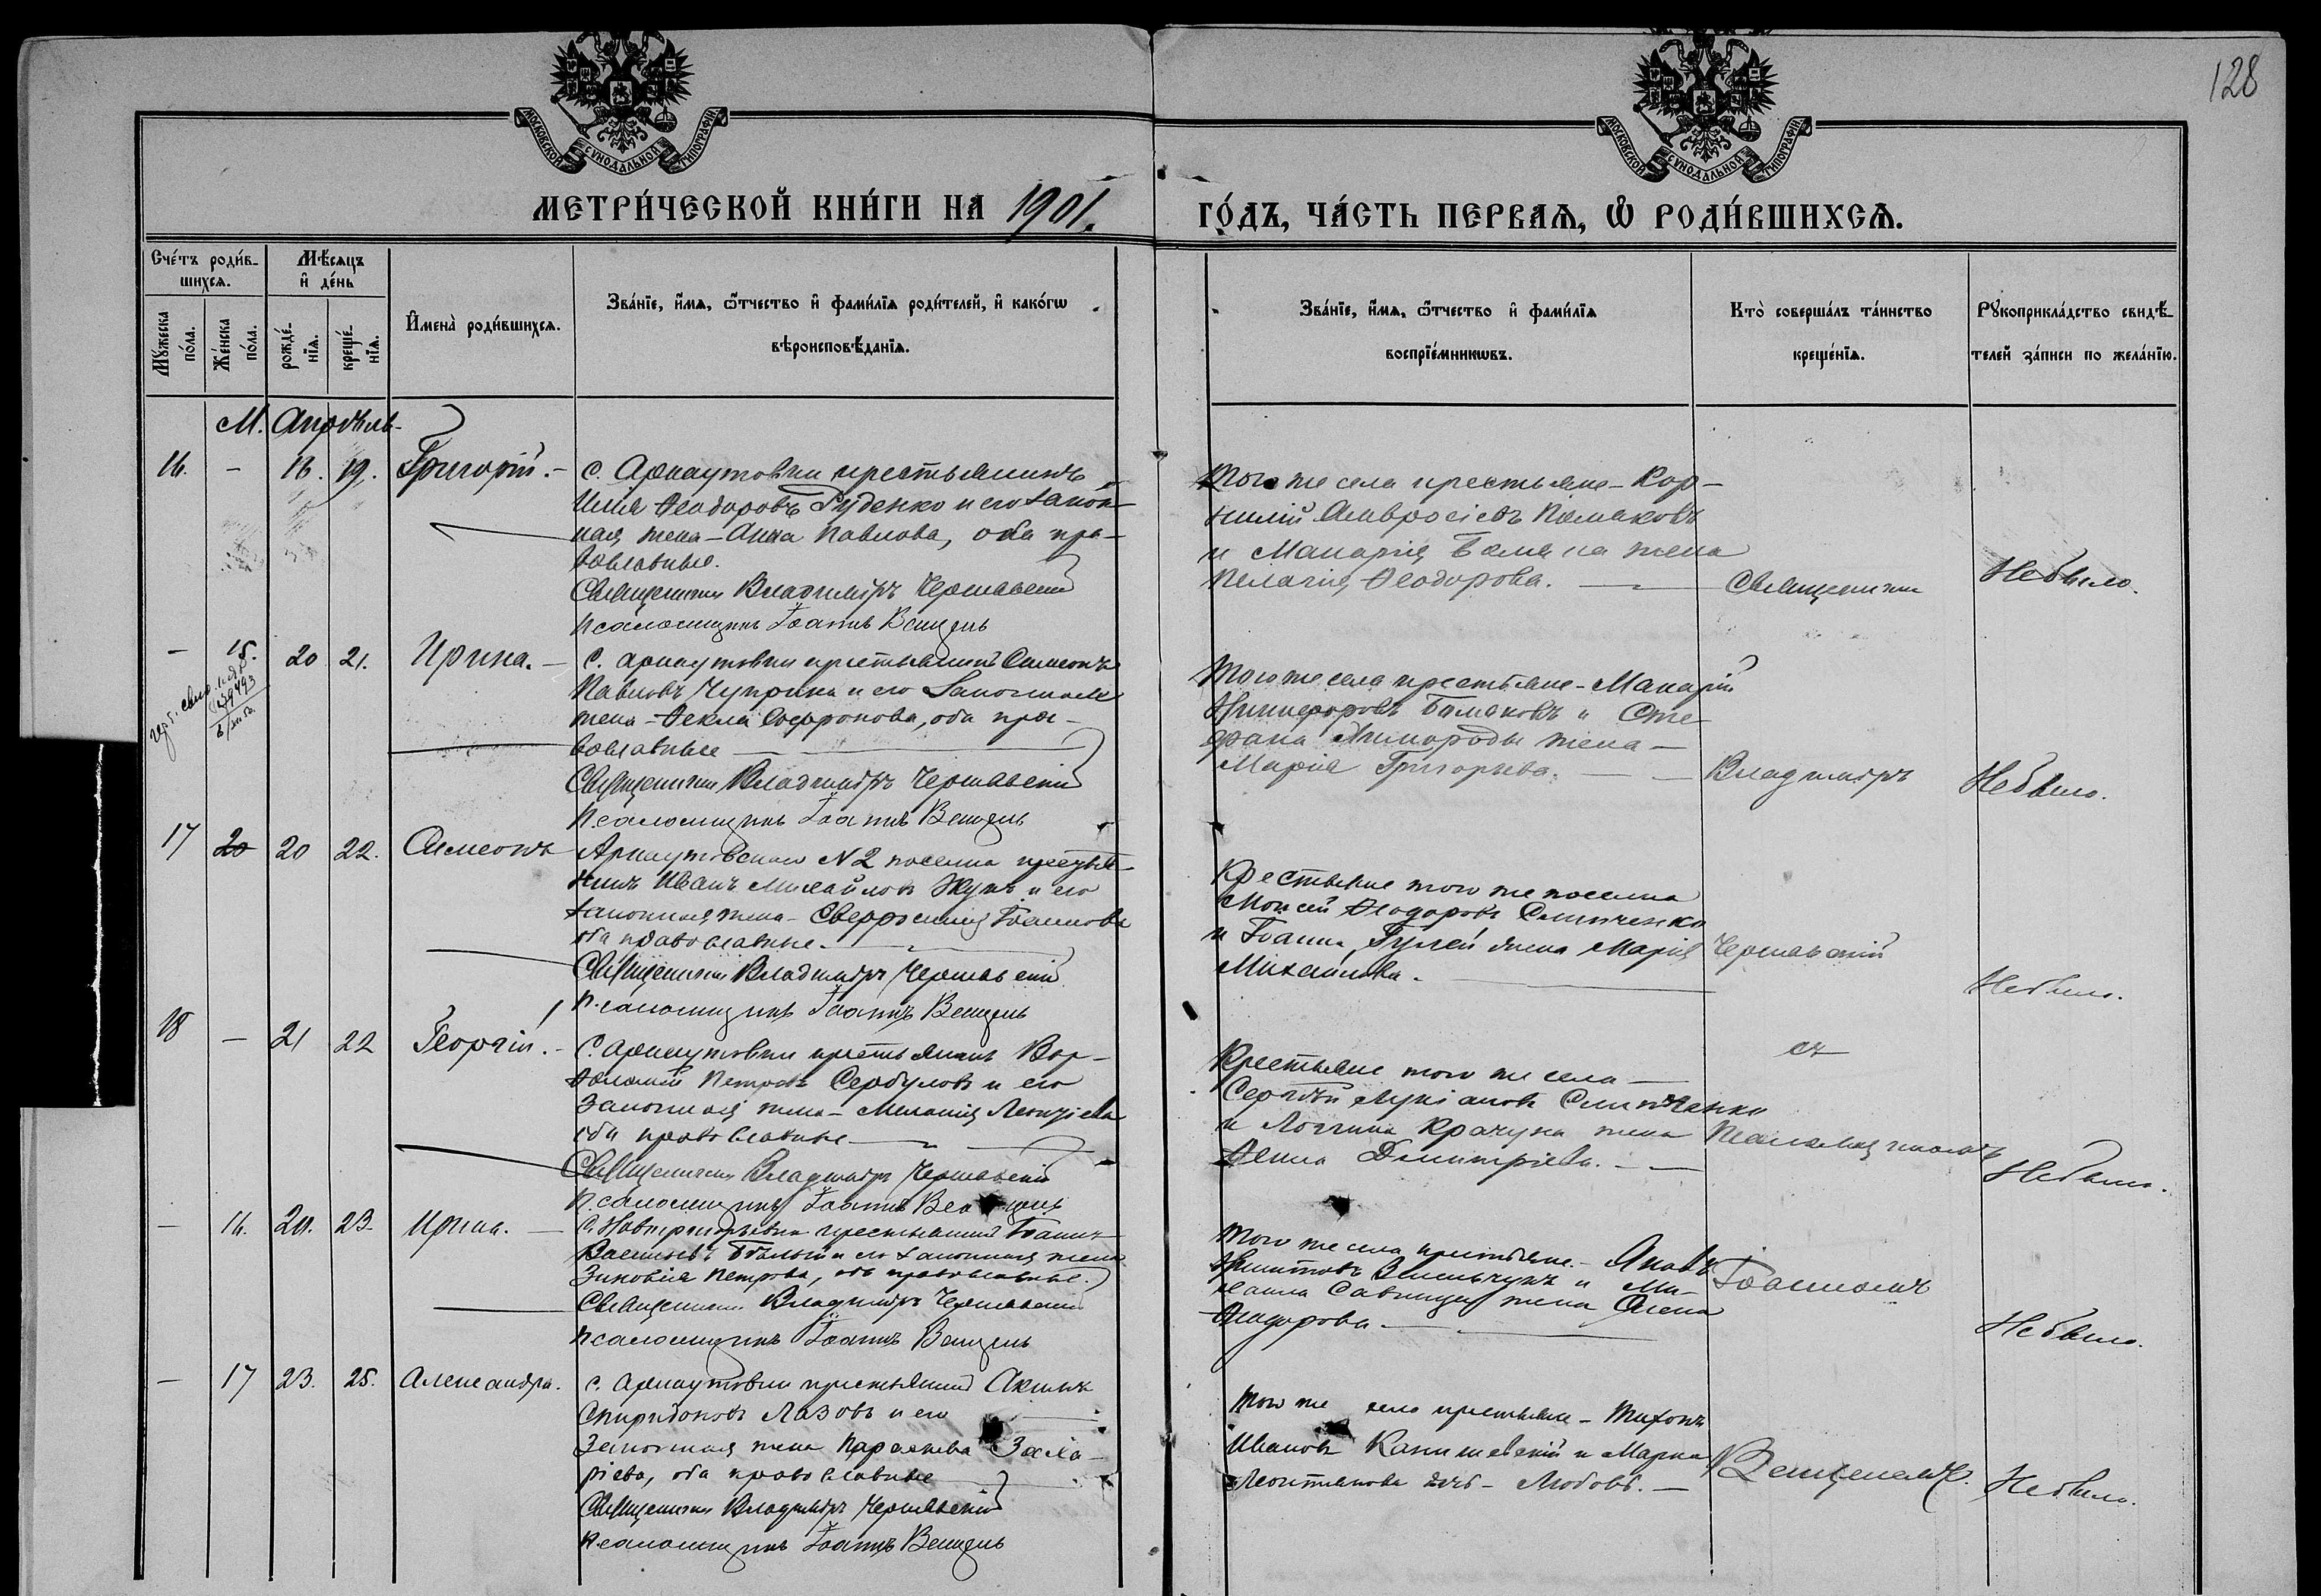 128
МОСКОВСКОЙ СУНОДАЛЬНОЙ ТИПОГРАФІИ
МОСКОВСКОЙ СУНОДАЛЬНОЙ ТИПОГРАФІИ
МЕТРИ́ЧЕСКОЙ КНИ́ГИ НА 1901.
ГО́ДЪ, ЧА́СТЬ ПЕРВАѦ, Ѡ҆ РОДИ́ВШИХСѦ.
Сче́тъ роди́в-
шихсѧ.
Мꙋжеска по́ла.
Же́нска по́ла.
Мѣ́сѧцъ
и҆ де́нь
рожде́-
нїѧ.
креще́-
нїѧ.
И҆мена̀ роди́вшихсѧ.
Зва́нїе, и҆́мѧ, ѻ҆́тчество и҆ фами́лїѧ роди́телей, и҆ како́гѡ
вѣроисповѣ́данїѧ.
Зва́нїе, и҆́мѧ, ѻ҆́тчество и҆ фами́лїѧ
воспрїе́мникѡвъ.
Кто̀ соверша́лъ та́инство
креще́нїѧ.
Рꙋкоприкла́дство свидѣ́-
телей за́писи по жела́нїю.
М. Апрѣль
16. - 18. 19. Григорій. -
с. Арнаутовки крестьянинъ
Илія Ѳеодоровъ Руденко и его закон-
ная жена - Анна Павлова, оба пра-
вославные.
Священникъ Владиміръ Чернявскій
Псаломщикъ Іоаннъ Венцель
Того же села крестьяне - Кор-
нилій Амвросіевъ
и Макарія жена
Пелагія Ѳеодорова.
Священникъ
Не было.
- 15. 20 21. Ирина. -
с. Арнаутовки крестьянинъ Симеонъ
Павловъ Чуприна и его законная
жена - Ѳекла Софронова, оба пра-
вославные
Священникъ Владиміръ Чернявскій
Псаломщикъ Іоаннъ Венцель
Того же села крестьяне - Макарій
Никифоровъ и Сте-
фана жена -
Марія Григорьева.
Владиміръ
Не было.
17 20 20 22. Симеонъ
Арнаутовскаго N 2 поселка крестья-
нинъ Иванъ Михайловъ Жукъ и его
законная жена - Евфросинія Іоаннова
оба православные.
Священникъ Владиміръ Чернявскій
Псаломщикъ Іоаннъ Венцель
Крестьяне того же поселка
Моисей Ѳеодоровъ Слипченко
и Іоанна Гулей жена Марія
Михайлова.
Чернявскій
Не было.
18 - 21 22 Георгій. -
с. Арнаутовки крестьянинъ Вар-
ѳоломей Петровъ Сербуловъ и его
законная жена - Меланія Леонтіева
оба православные
Священникъ Владиміръ Чернявскій
Псаломщикъ Іоаннъ Венцель
Крестьяне того же села -
Сергѣй Лукіановъ Слипченко
и Логгина Крачуна жена
Ѳекла Димитріева.
съ
Псаломщикомъ
Не было.
- 16. 20. 23. Ирина. -
с. Новогригорьевки крестьянинъ Іоаннъ
Васильевъ Бѣлый и его законная жена
Зиновія Петрова, оба православные.
Священникъ Владиміръ Чернявскій
Псаломщикъ Іоаннъ Венцель
Того же села крестьяне - Яковъ
и Ми-
хаила жена
Ѳеодорова.
Іоанномъ
Не было.
- 17 23. 25. Александра.
с. Арнаутовки крестьянинъ
Спиридоновъ Лазовъ и его
законная жена Параскева Заха-
ріева, оба православные
Священникъ Владиміръ Чернявскій
Псаломщикъ Іоаннъ Венцель
Того же села крестьяне - Тихонъ
Ивановъ и Марка
дочь - Любовь. -
Венцелемъ.
Не было.